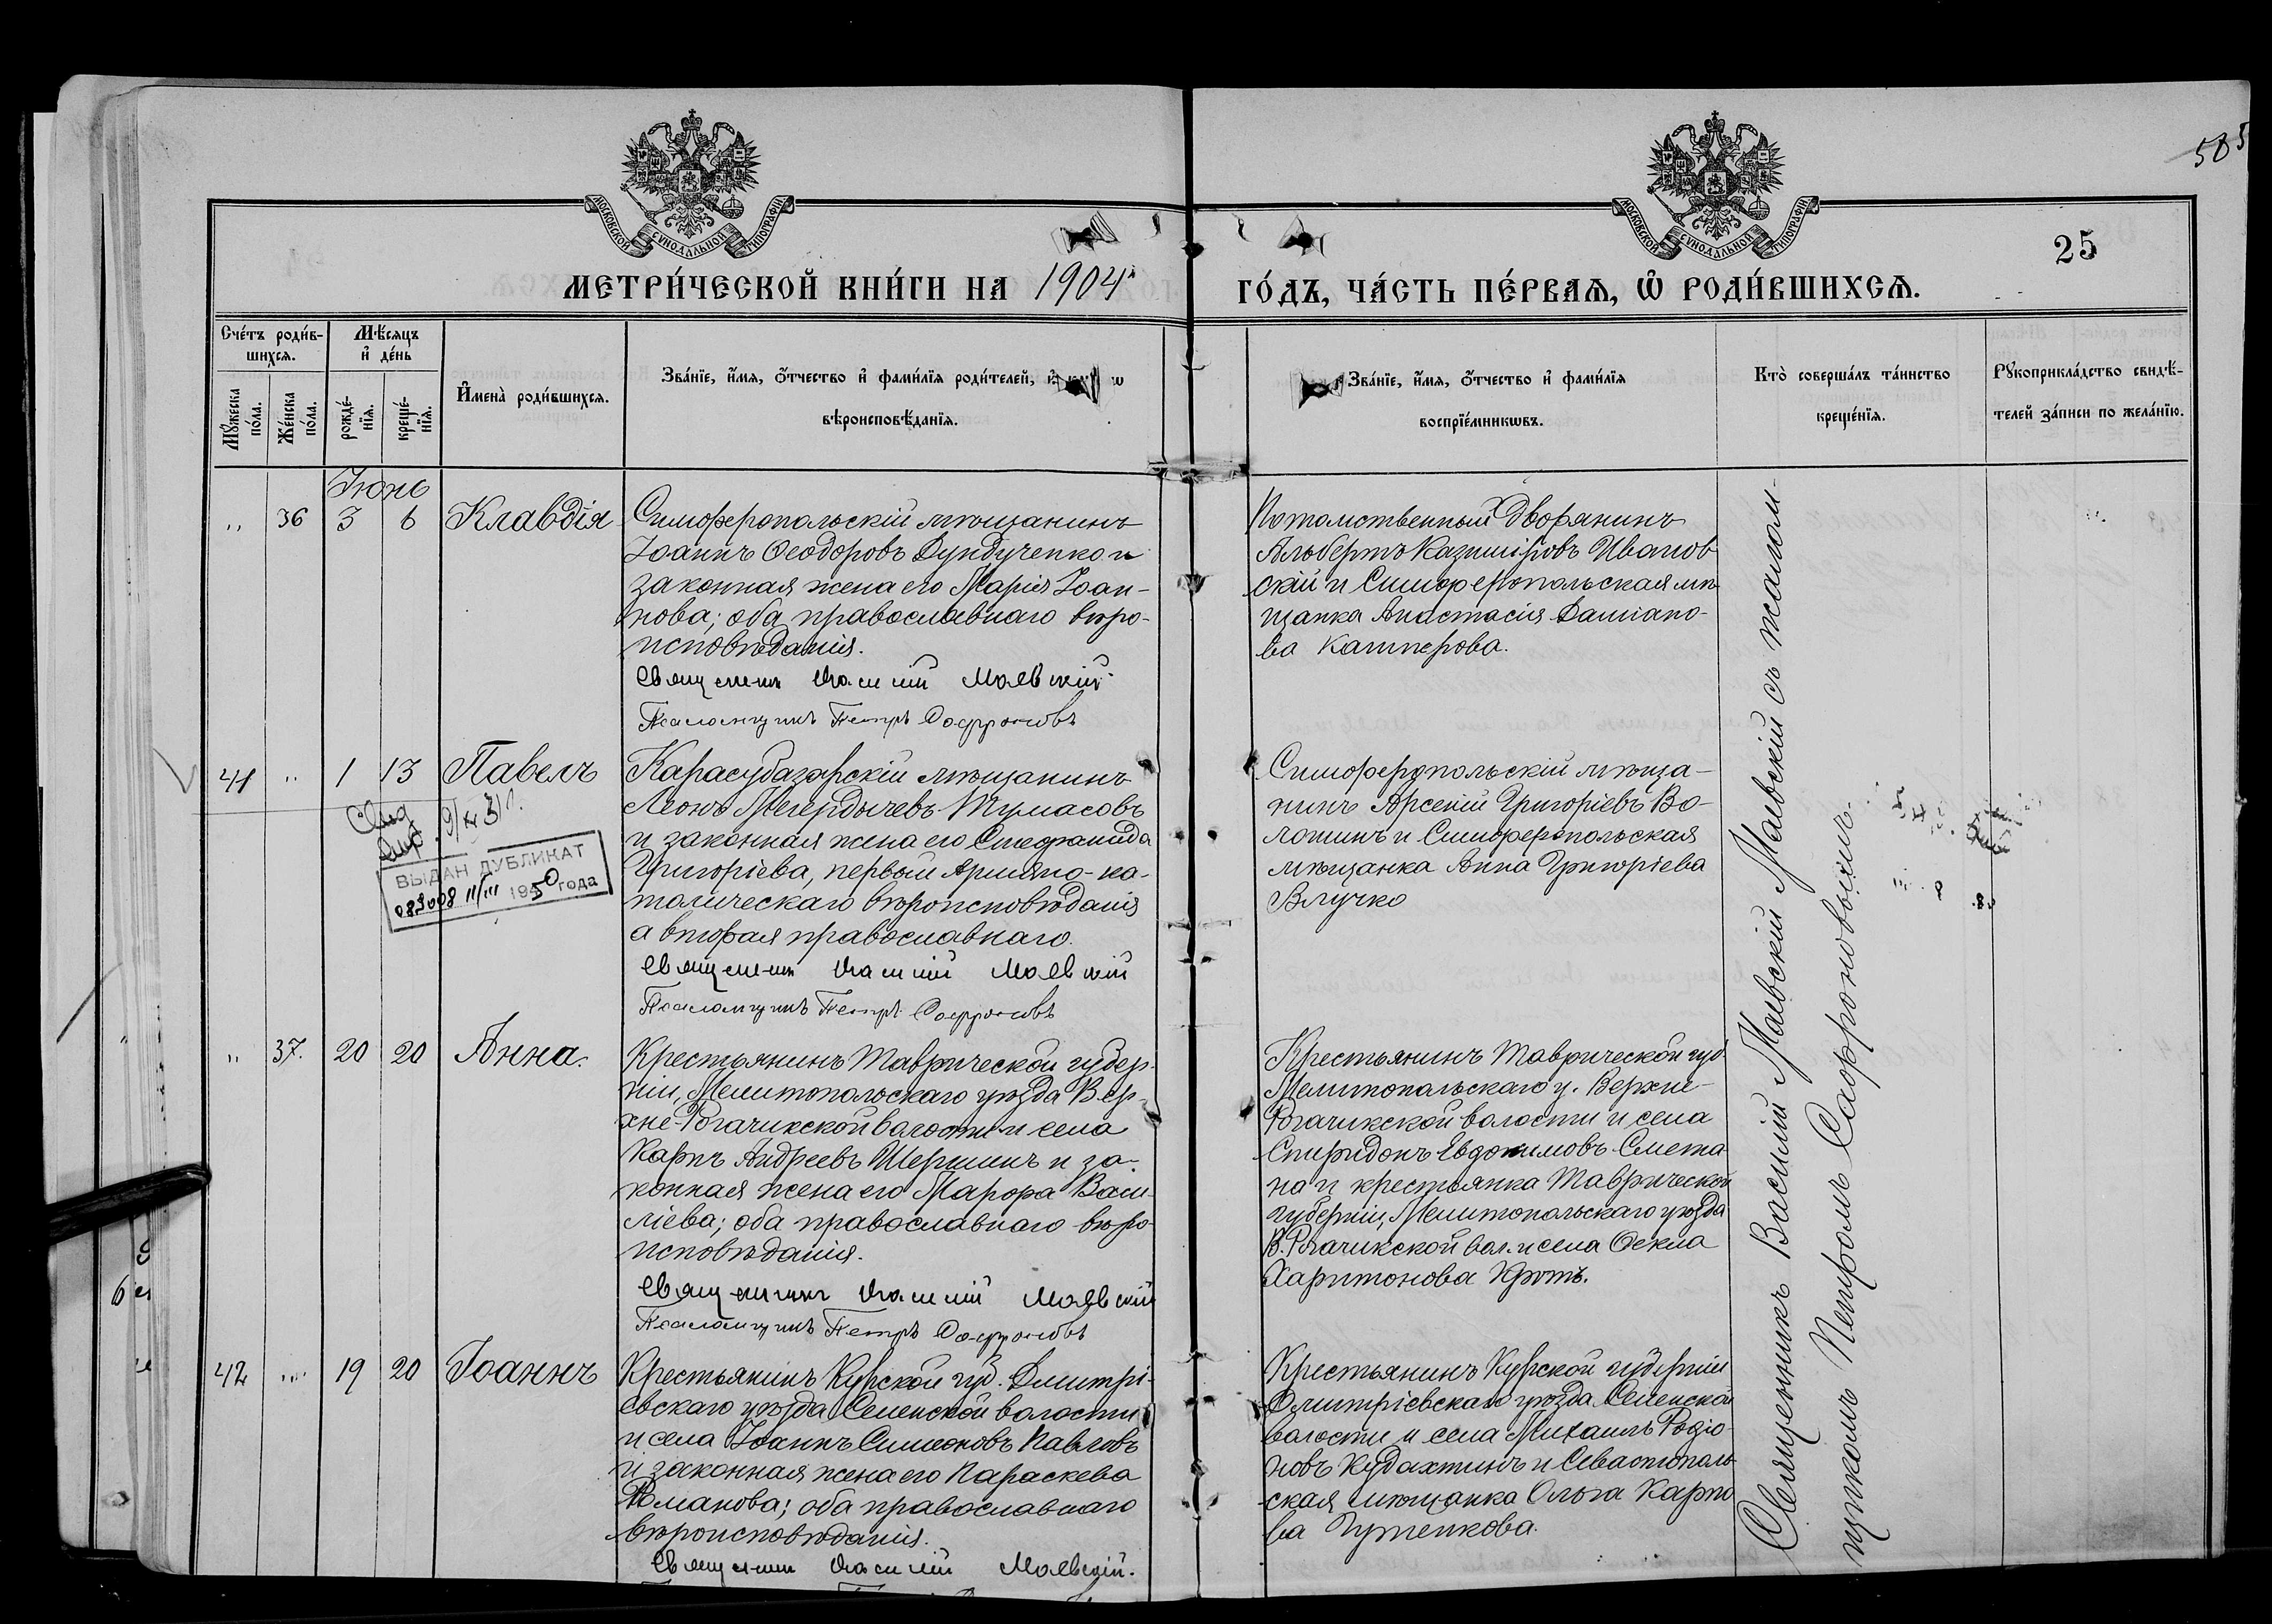 585
25
МОСКОВСКОЙ СѴНОДАЛЬНОЙ ТИПОГРАФІИ
МОСКОВСКОЙ СѴНОДАЛЬНОЙ ТИПОГРАФІИ
МЕТРИ́ЧЕСКОЙ КНИ́ГИ НА 1904
ГО́ДЪ, ЧА́СТЬ ПЕ́РВАѦ, Ѡ҆ РОДИ́ВШИХСѦ.
Сче́тъ роди́в-
шихсѧ.
Мꙋ́жеска по́ла.
Же́нска по́ла.
Мѣ́сѧцъ
и҆ де́нь
рожде́-
нїѧ.
креще́-
нїѧ.
И҆мена̀ роди́вшихсѧ.
Зва́нїе, и҆́мѧ, ѻ҆́тчество и҆ фами́лїѧ роди́телей, и҆
вѣроисповѣ́данїѧ.
Зва́нїе, и҆́мѧ, ѻ҆́тчество и҆ фами́лїѧ
воспрїе́мникѡвъ.
Кто̀ соверша́лъ та́инство
креще́нїѧ.
Рꙋкоприкла́дство свидѣ́-
телей за́писи по жела́нїю.
Іюнь
„ 36 3 6 Клавдія
Симферопольскій мѣщанинъ
Іоаннъ Ѳеодоровъ Дундученко и
законная жена его Марія Іоан-
нова; оба православнаго вѣро-
исповѣданія.
Священникъ Василій Маевскій
Псаломщикъ Петръ Софроновъ
Потомственный Дворянинъ
Альбертъ Казиміровъ Иванов
скій и Симферопольская мѣ
щанка Анастасія Даміано-
ва Кашперова.
41 „ 1 13 Павелъ
Карасубазарскій мѣщанинъ
Леонъ Мегердычевъ Тумасовъ
и законная жена его Стефанида
Григоріева, первый Армяно-ка-
толическаго вѣроисповѣданія
а вторая православнаго.
Священникъ Василій Маевскій
Псаломщикъ Петръ Софроновъ
ВЫДАН ДУБЛИКАТ
083008 11/III 1950 года
Симферопольскій мѣща-
нинъ Арсеній Григоріевъ Во-
лошинъ и Симферопольская
мѣщанка Анна Григоріева
Влучко
„ 37. 20 20 Анна.
Крестьянинъ Таврической губер-
ніи, Мелитопольскаго уѣзда Вер-
хне-Рогачикской волости и села
Карпъ Андреевъ Шершинъ и за-
конная жена его Марфра Васи-
ліева; оба православнаго вѣро-
исповѣданія.
Священникъ Василій Маевскій
Псаломщикъ Петръ Софроновъ
Крестьянинъ Таврической губ.
Мелитопольскаго у. Верхне-
Рогачикской волости и села
Спиридонъ Евдокимовъ Смета
на и крестьянка Таврической
губерніи, Мелитопольскаго уѣзда
В. Рогачикской вол. и села Ѳекла
Харитонова Кротъ.
42 „ 19 20 Іоаннъ
Крестьянинъ Курской губ. Димитрі-
евскаго уѣзда Селенской волости
и села Іоаннъ Симеоновъ Павловъ
и законная жена его Параскева
Романова; оба православнаго
вѣроисповѣданія.
Священникъ Василій Маевскій.
Крестьянинъ Курской губерніи
Димитріевскаго уѣзда Селенской
волости и села Михаилъ Родіо-
новъ Кудахтинъ и Севастополь
ская мѣщанка Ольга Карпо
ва Гутенкова.
Священникъ Василій Маевскій Маевскій съ псалом-
щикомъ Петромъ Софроновымъ.